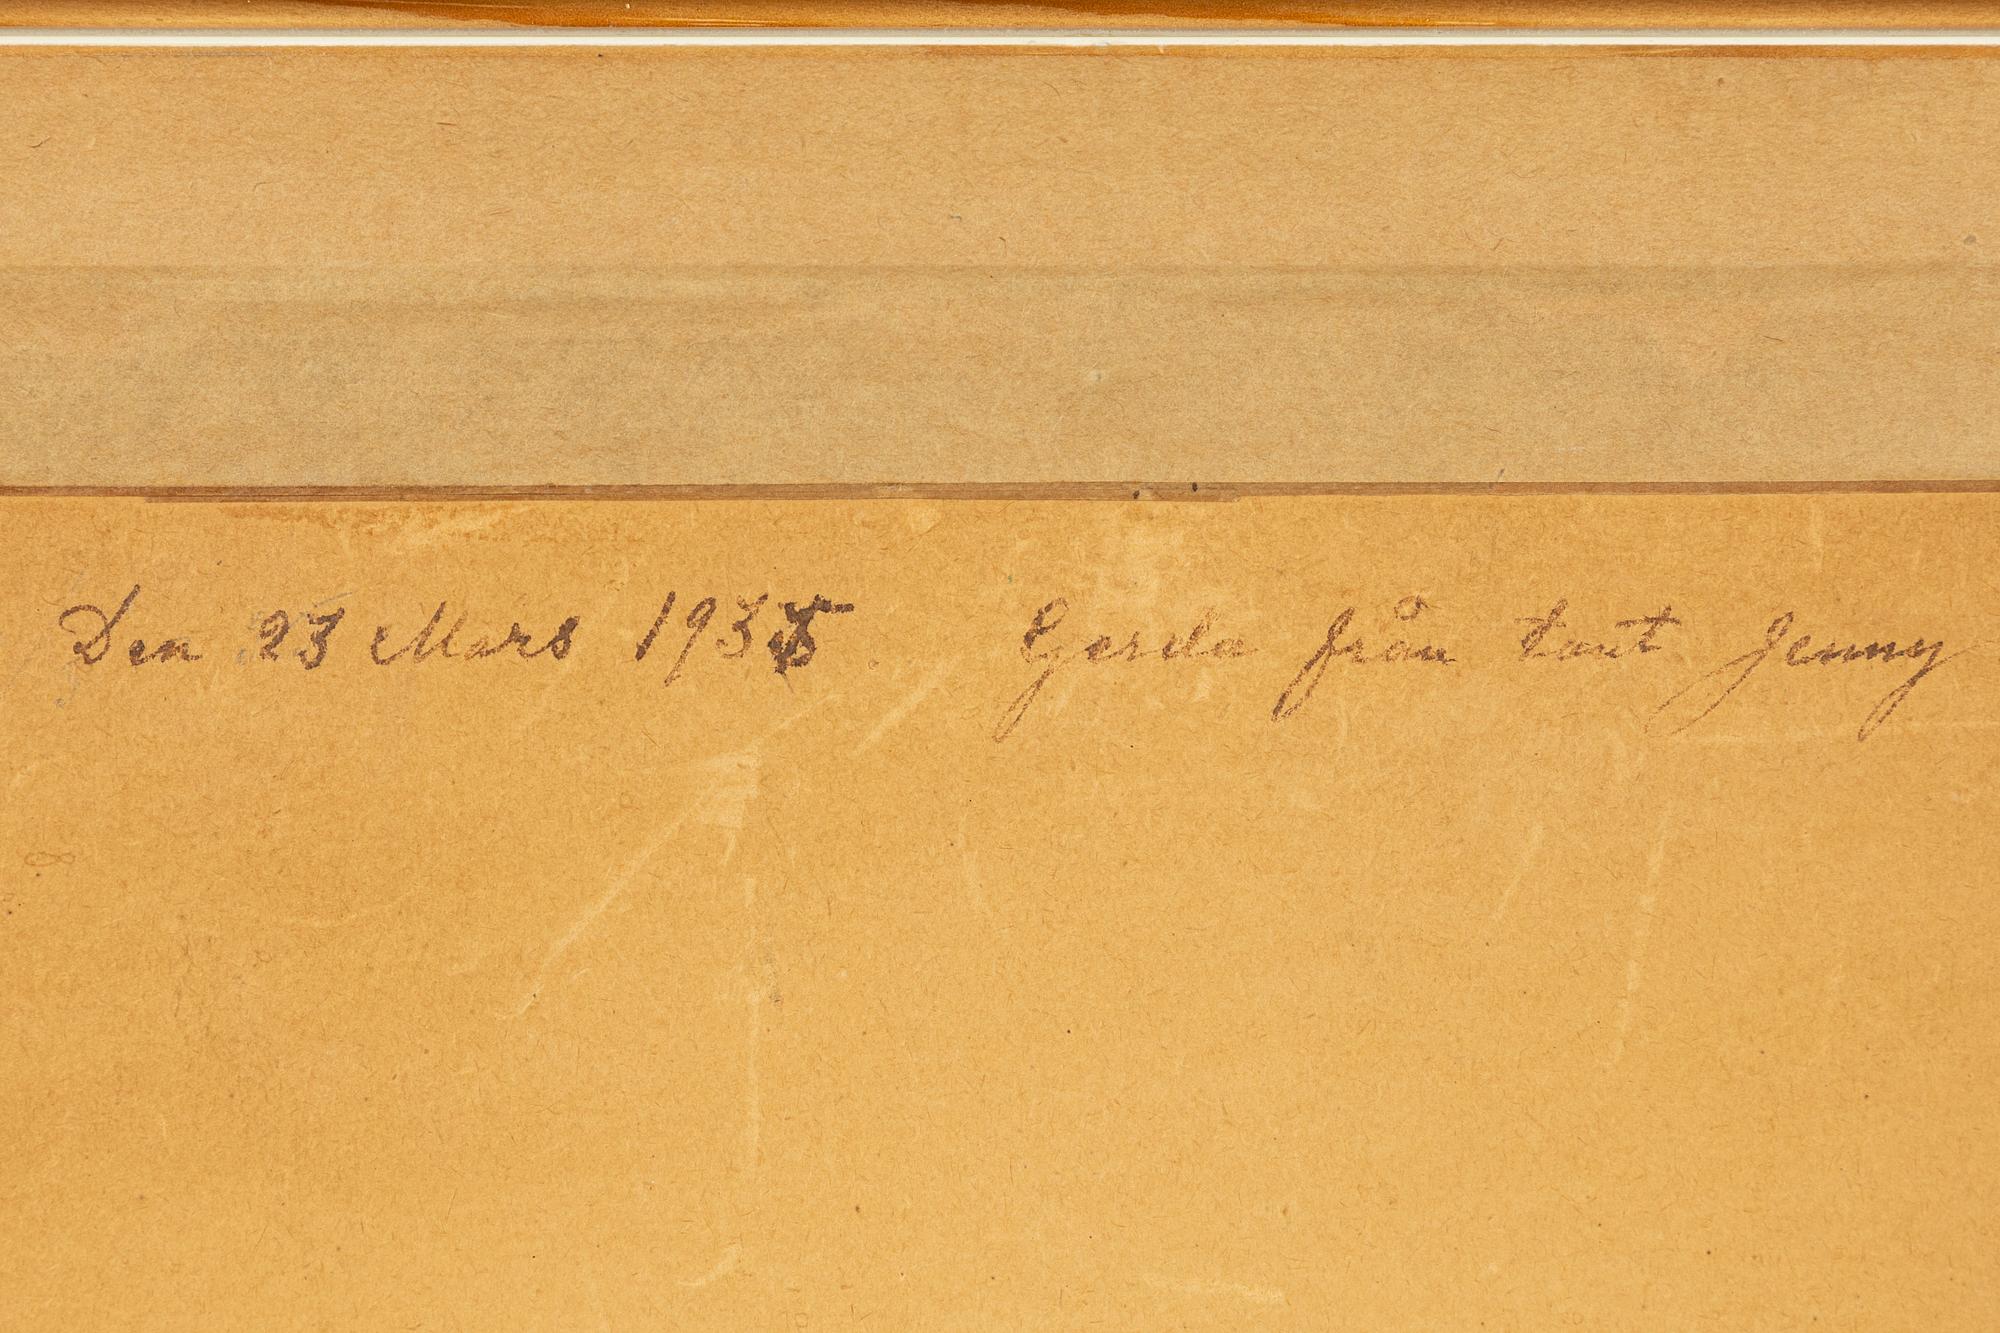 Den 23 Mars 1935. Gerda från tant Jenny